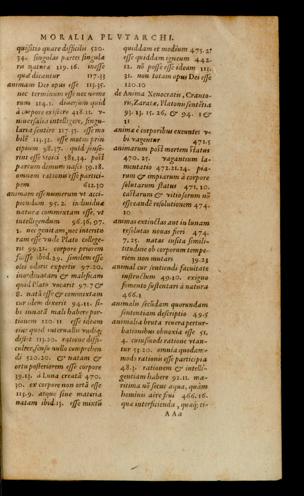 MORALIA PLVTARCHI.
quisitio quare difficilis 520.
34. singulas partes singula
ra natura 119.16. inesse
qua dicantur 117.33
animam Dei opus esse 113.35.
nec terminum esse nec nume
rum 114.1. diuersum quid
à corpore existere 418.11. v-
niuersalia intelligere, singu-
laria sentire 117.35. esse mo
bile 113.32. esse motus prin
cipium 98.17. quid senserint
esse stoici 381.34. post
deorum domini nasci 39.18.
omnium rationis esse partici-
pem 612.30
animam esse numerum vt acci-
piendum 95.2. indiuiduæ
natura commixtam esse, vt
intelligendum 96.36.97.
2. nec genitam, nec interitu
ram esse vnde Plato college-
rit 99.21. corpore priorem
fuisse ibid. 29. similem esse
oleo odoris expertis 97.20.
inordinatam & maleficam
quid Plato vocarit 97.7 &
8. natã esse & commixtam
cur idem dixerit 94.11. si-
bi innatã mali habere par-
tionem 120.11 esse ideam
eius quod interuallis vndique
distet 113.20. ratione diffi-
culter, sensu nullo comprehen
di 520.20. & natam &
ortu posteriorem esse corpore
39.13. à Luna creatã 470.
30. ex corpore non ortã esse
113.9. atque sine materia
natam ibid. 13. esse mixtũ
quiddam et modium 475.2?
esse quiddam igneum 442.
21. nõ posse esse ideam 113.
31. non totam opus Dei esse
120.10
de Anima Xenocratis, Cranto-
ris, Zarate, Platonis sentẽtia
93.13.15.26, & 94.1 &
11
animæ è corporibus exeuntes v-
bi vagentur 471.5
animarum post mortem status
470.25. vagantium la-
mentatio 472.11.24. pia-
rum & impiarum à corpore
solutarum status 471.20.
castarum & vitiosarum nõ
esse eandẽ resolutionem 474.
10
animas extinctas aut in lunam
resolutas nouas fieri 474.
7.25. natas insita simili-
tudine ob corporum tempe-
riem non mutari 39.23
animal cur sentiendi facultate
instructum 40.20. exiguo
fomento sustentari à natura
466.1
animalis secũdum quorundam
sententiam descriptio 49.5
animalia bruta reuera pertur-
bationibus obnoxia esse 51.
4. cuiusmodi ratione vtan-
tur 53.20. omnia quodam-
modi rationis esse participia
48.3. rationem & intelli-
gentiam habere 92.11. ma-
ritima nõ secus aqua, quàm
homines aire frui 466.16.
qua interficienda, quæq; ci-
AAa